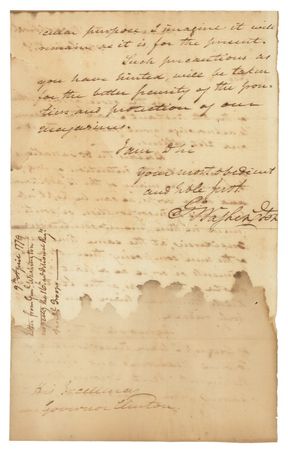 cular purpose, I imagine it will
remain as it is for the present.
Such precautions as
you have hinted will be taken
for the better security of the fron-
tiers and protection of our
magazines.
I am Sir
your most obedient
and hble servt
Go Washington
9th April 1779
letter from Genl Washington
Troops
His Excellency
Governor Clinton.